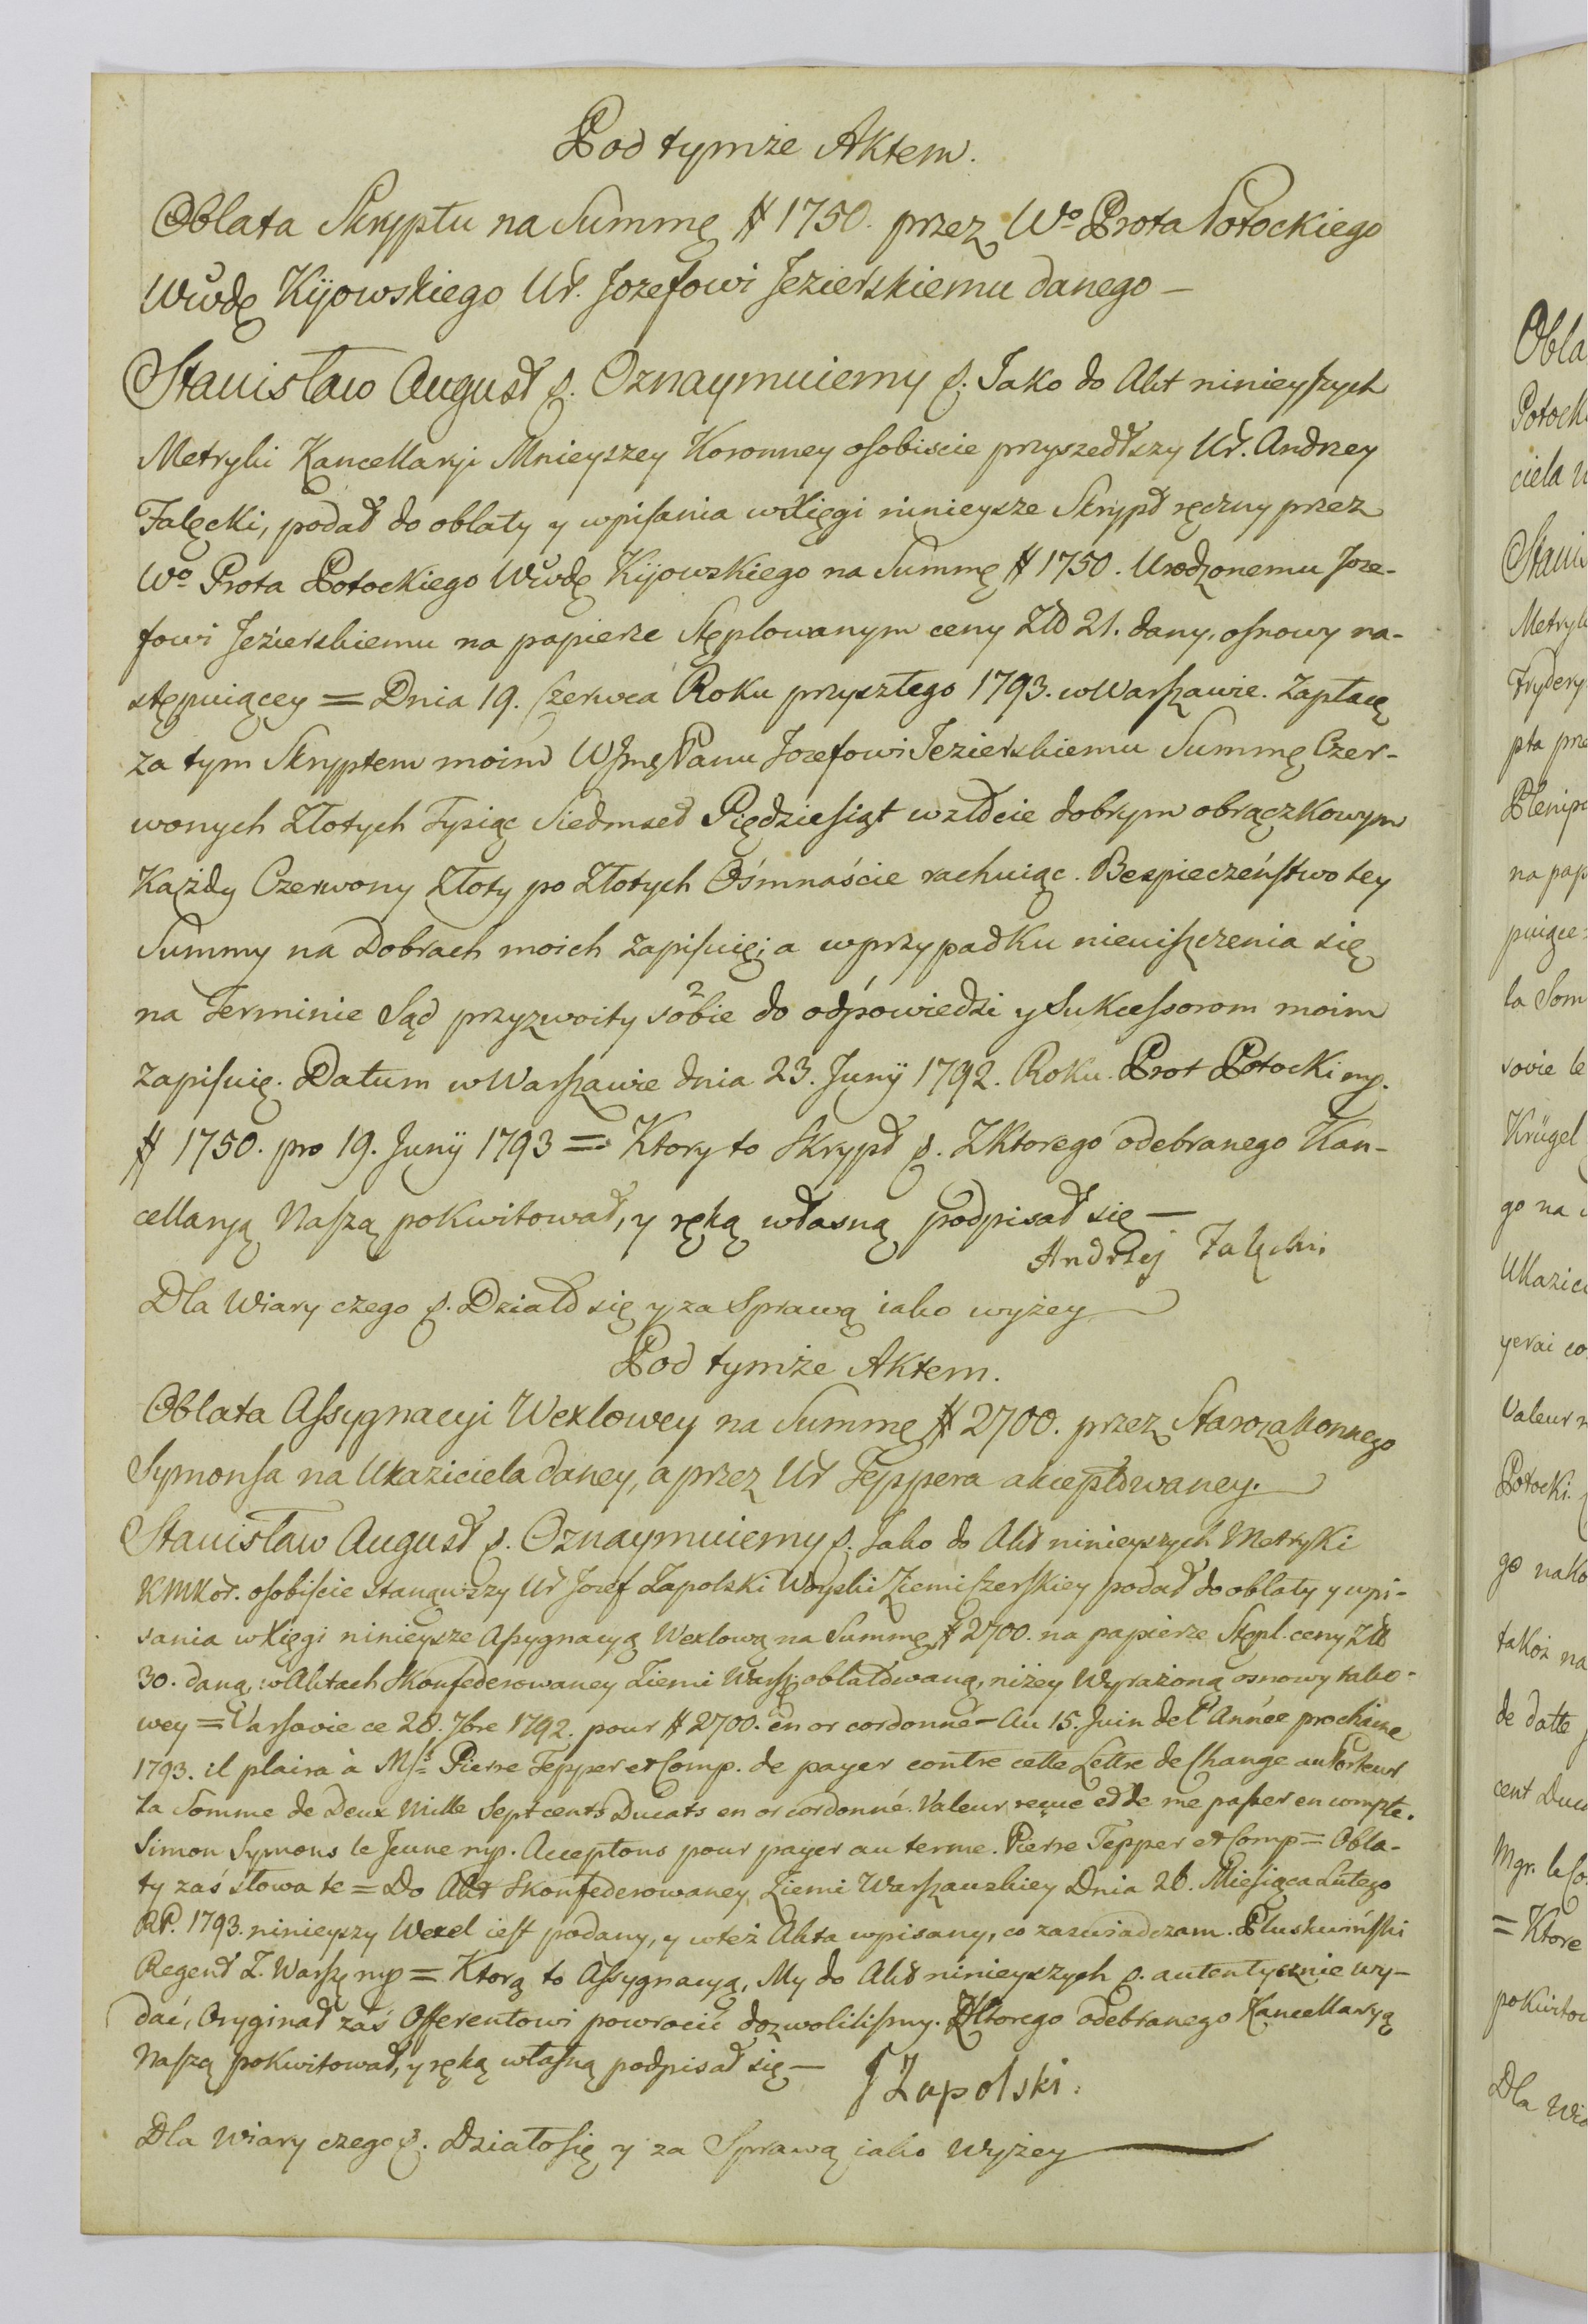 Pod tymże Aktem.
Oblata Skryptu na Summę # 1750. przez Wo Prota Potockiego
Wwdę Kijowskiego Ur. Jozefowi Jezierskiemu danego —
Stanisław August &. Oznaymuiemy &. Jako do Akt ninieyszych
Metryki Kancellaryi Mnieyszey Koronney osobiscie przyszedłszy Ur. Andrzey
Falęcki, podał do oblaty y wpisania w Xięgi ninieysze Skrypt ręczny przez
Wo Prota Potockiego Wwdę Kijowskiego na Summę # 1750. Urodzonemu Joze-
fowi Jezierskiemu na papierze Stęplowanym ceny Złł 21. dany, osnowy na-
stępuiącey = Dnia 19. Czerwca Roku przyszłego 1793. w Warszawie. Zapłacę
za tym Skryptem moim WJmę Panu Jozefowi Jezierskiemu Summę Czer-
wonych Złotych Tysiąc Siedmset Piędziesiąt w złocie dobrym obrączkowym
Każdy Czerwony Złoty po Złotych Ośmnaście rachuiąc. Bezpieczeństwo tey
Summy na Dobrach moich zapisuię; a w przypadku nieuiszczenia się
na Terminie Sąd przyzwoity sobie do odpowiedzi y Sukcessorom moim
zapisuię. Datum w Warszawie dnia 23. Junÿ 1792. Roku. Prot Potocki mp.
# 1750. pro 19. Junÿ 1793 = Ktory to Skrypt &. Z Ktorego odebranego Kan-
cellaryą Naszą pokwitował, y ręką własną podpisał się —
Andrzej Falęcki
Dla Wiary czego &. Działo się y za Sprawą iako wyżey
Pod tymże Aktem.
Oblata Assygnacyi Wexlowey na Summę # 2700. przez Starozakonnego
Symonsa na Ukaziciela daney, a przez Ur Teppera akceptowaney.
Stanisław August &. Oznaymuiemy &. Jako do Akt ninieyszych Metryki
KMKor. osobiscie stanąwszy Ur Jozef Zapolski Woyski Ziemi Czerskiey podał do oblaty y wpi-
sania w Xięgi ninieysze Assygnacyą Wexlową na Summę # 2700. na papierze Stępl. ceny Złł
30. daną, w Aktach Skonfederowaney Ziemi Warsz: oblatowaną, niżey Wyrażoną osnowy tako-
wey = Varsovie ce 28. 7bre 1792. pour # 2700. en or cordonné — Au 15. Juin de l'Année prochaine
1793. il plaira à Mss Pierre Tepper et Comp. de payer contre cette Lettre de Change au Porteur
la Somme de Deux Mille Sept cents Ducats en or cordonné. Valeur reçue et de me passer en compte.
Simon Symons le Jeune mp. Acceptons pour payer au terme. Pierre Tepper et Comp = Obla-
ty zaś słowa te = Do Akt Skonfederowaney Ziemi Warszawskiey Dnia 26. Miesiąca Lutego
RP. 1793. ninieyszy Wexel iest podany, y w też Akta wpisany, co zaswiadczam. Pluskwiński
Regent Z. Warsz mp = Ktorą to Assygnacyą, My do Akt ninieyszych &. autentycznie wy-
dać, Oryginał zaś Offerentowi powrocić dozwolilismy. Z Ktorego odebranego Kancellaryą
Naszą pokwitował, y ręką własną podpisał się —
J Zapolski.
Dla Wiary czego &. Działo się y za Sprawą iako Wyżey
Obla
Potock
ciela
Stani
Metryk
Frydery
pta prz
Plenip
na pap
puiące
la Som
sovie le
Krügel
go na
Ukazic
yerai co
Valeur
Potocki.
go nako
takoż na
de datte
cent Duc
Mgr. le Co
= Ktore
pokwitow
Dla Wia